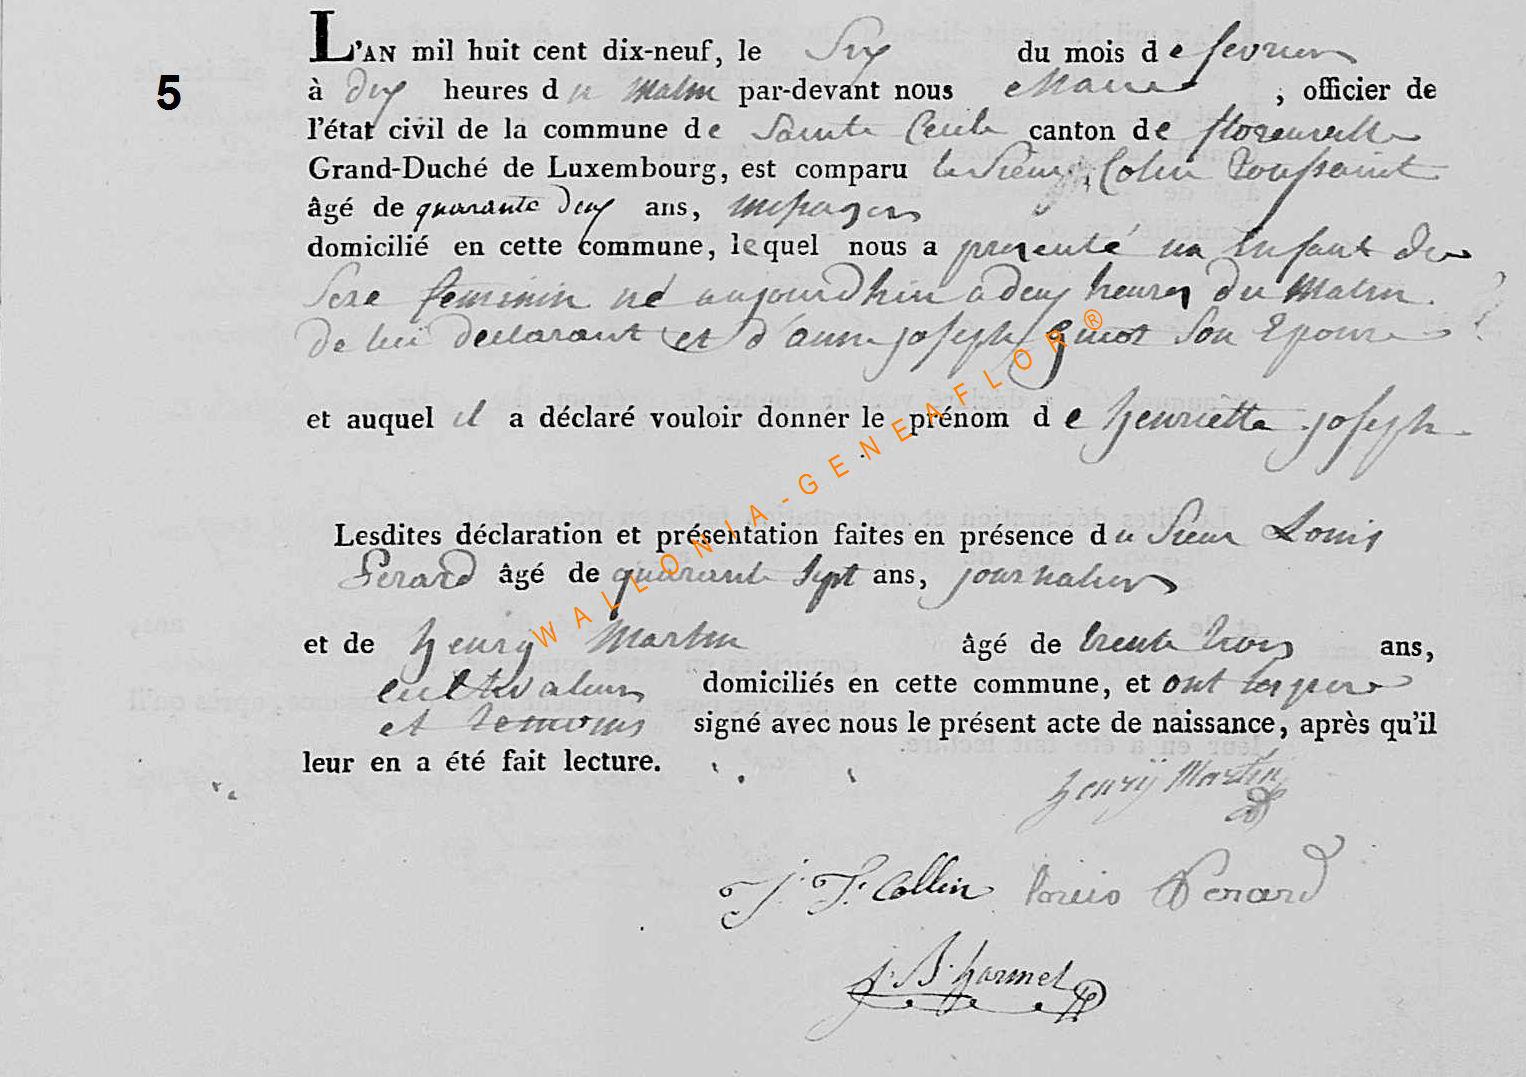 L'AN mil huit cent dix-neuf, le Six du mois de fevrier
5
à dix heures du Matin par-devant nous Maire, officier de
l'état civil de la commune de Sainte Cecile canton de florenville
Grand-Duché de Luxembourg, est comparu le Sieur Colin toussaint
âgé de quarante deux ans, messager
domicilié en cette commune, lequel nous a presenté un Enfant du
Sexe feminin né aujourdhui a deux heures du Matin
de lui declarant et d'anne joseph guiot Son Epouse
et auquel il a déclaré vouloir donner le prénom de henriette joseph
Lesdites déclaration et présentation faites en présence du Sieur Louis
Perard âgé de quarante Sept ans, journalier
et de henry Martin âgé de trente trois ans,
cultivateur domiciliés en cette commune, et ont les pere
et temoins signé avec nous le présent acte de naissance, après qu'il
leur en a été fait lecture.
henrÿ Martin
J. F. Collin Louis Perard
J. B. harmel
WALLONIA-GENEAFLOR®